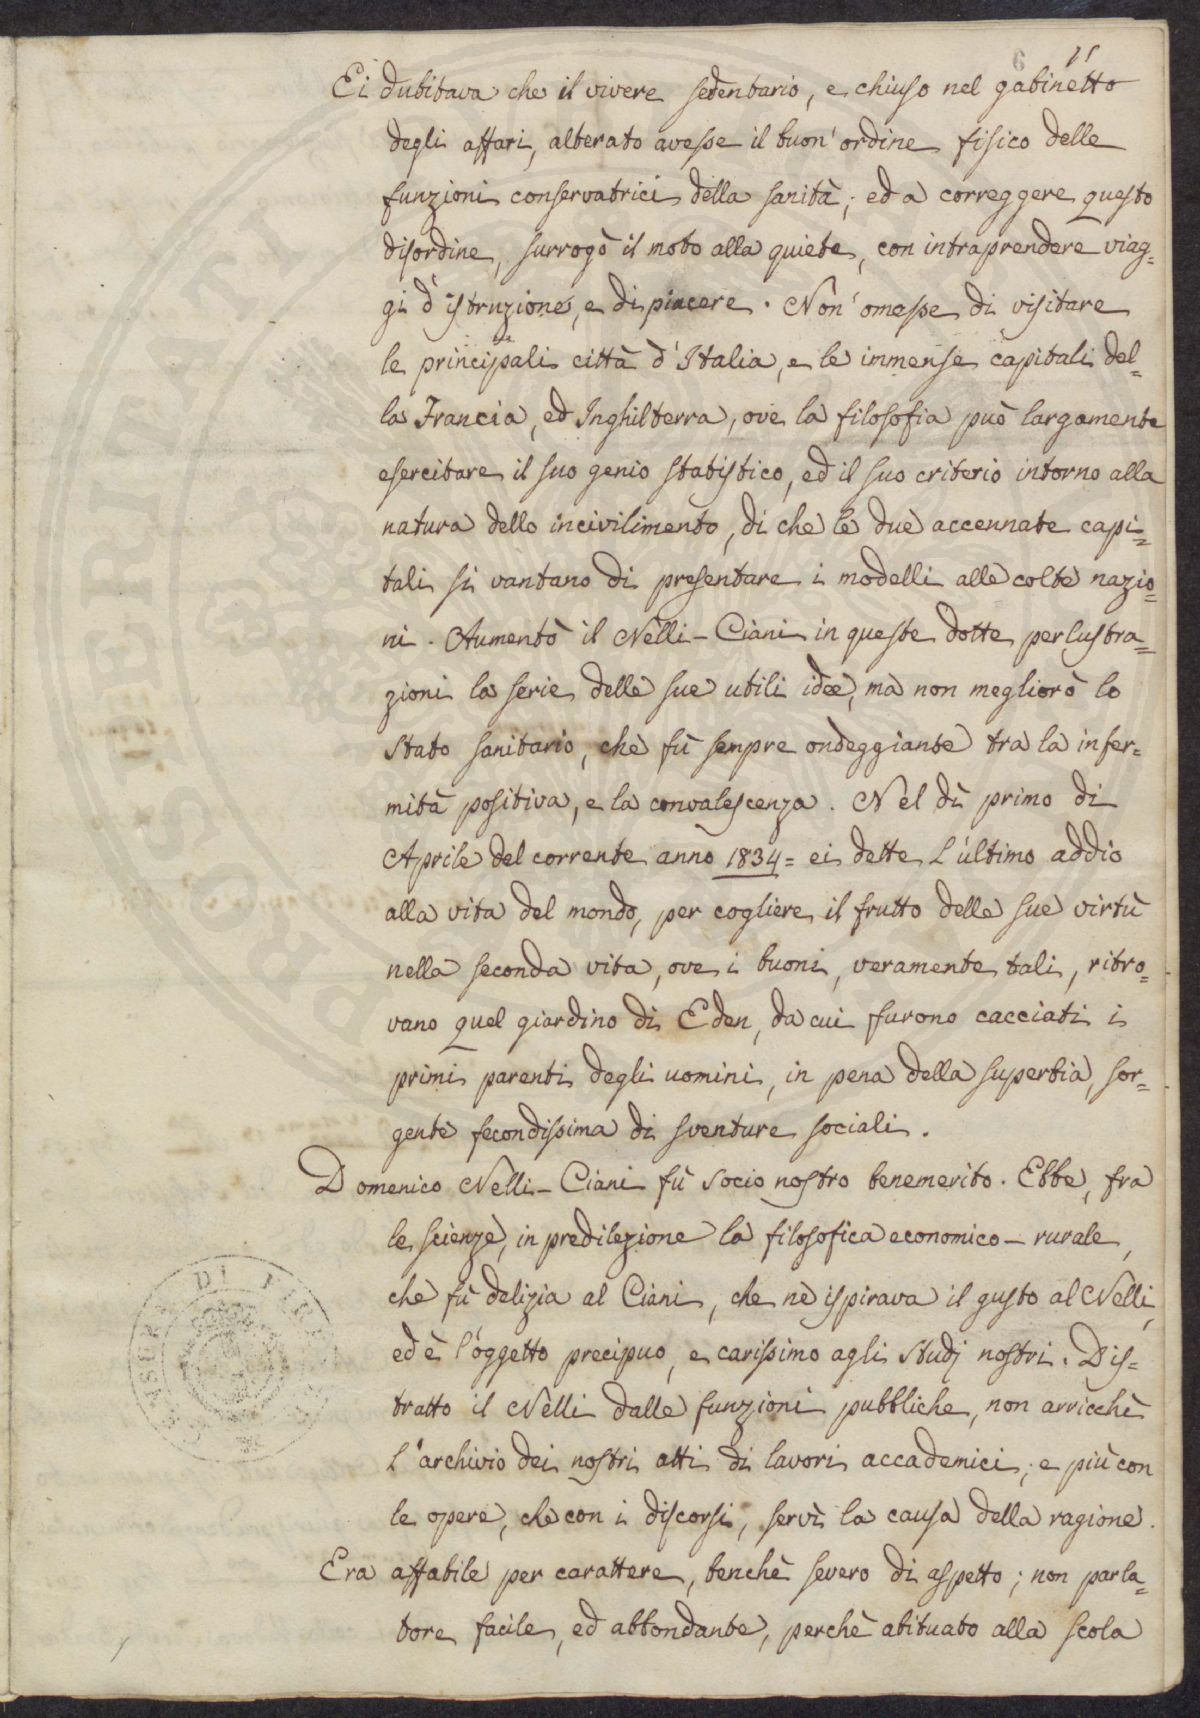 6 11
Ei dubitava che il vivere sedentario, e chiuso nel gabinetto
degli affari, alterato avesse il buon' ordine fisico delle
funzioni conservatrici della sanità; ed a correggere questo
disordine, surrogò il moto alla quiete, con intraprendere viag=
gi d'istruzione, e di piacere. Non' omesse di visitare
le principali città d'Italia, e le immense capitali del=
la Francia, ed Inghilterra, ove la filosofia può largamente
esercitare il suo genio statistico, ed il suo criterio intorno alla
natura dello incivilimento, di che le due accennate capi=
tali si vantano di presentare i modelli alle colte nazio=
ni. Aumentò il Nelli-Ciani in queste dotte perlustra=
zioni la serie delle sue utili idee, ma non megliorò lo
stato sanitario, che fù sempre ondeggiante tra la infer=
mità positiva, e la convalescenza. Nel dì primo di
Aprile del corrente anno 1834= ei dette l'ultimo addio
alla vita del mondo, per cogliere il frutto delle sue virtù
nella seconda vita, ove i buoni, veramente tali, ritro=
vano quel giardino di Eden, da cui furono cacciati i
primi parenti degli uomini, in pena della superbia, sor=
gente fecondissima di sventure sociali.
Domenico Nelli-Ciani fù socio nostro benemerito. Ebbe, fra
le scienze, in predilezione la filosofica economico-rurale,
che fù delizia al Ciani, che ne ispirava il gusto al Nelli,
ed è l'oggetto precipuo, e carissimo agli studj nostri. Dis=
tratto il Nelli dalle funzioni pubbliche, non arricchì
l'archivio dei nostri atti di lavori accademici; e più con
le opere, che con i discorsi, servì la causa della ragione.
Era affabile per carattere, benchè severo di aspetto; non parla=
tore facile, ed abbondante, perchè abituato alla scola